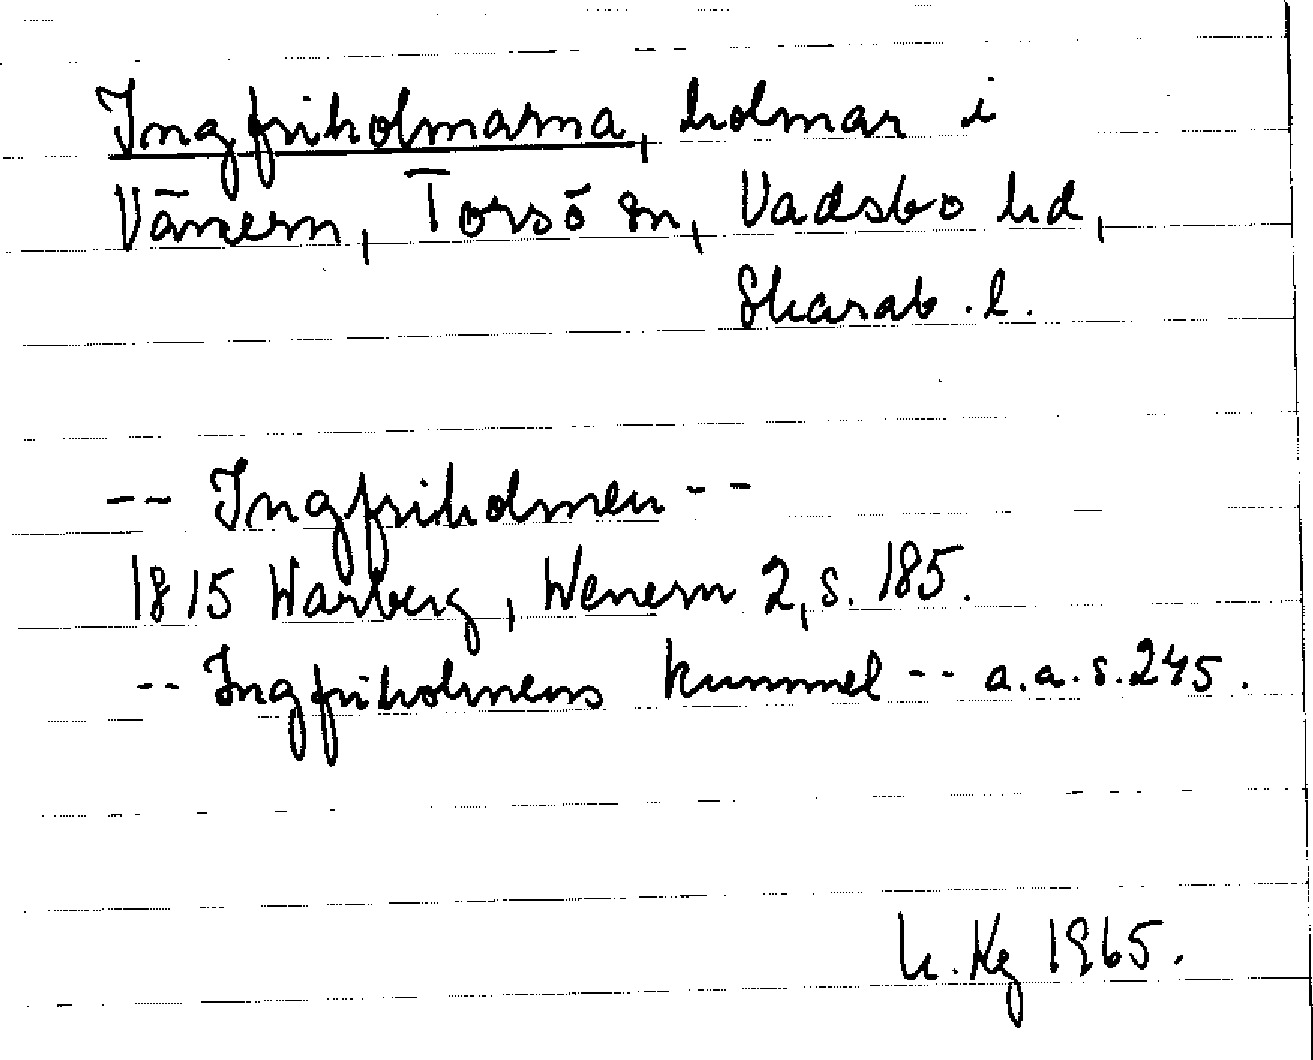 Ingfriholmarna, holmar i
Vänern, Torsö sn, Vadsbo hd,
Skarab. l.
-- Ingfriholmen --
1815 Warberg, Wenern 2, s. 185.
-- Ingfriholmens kummel -- a.a. s. 245.
K. Kg 1965.